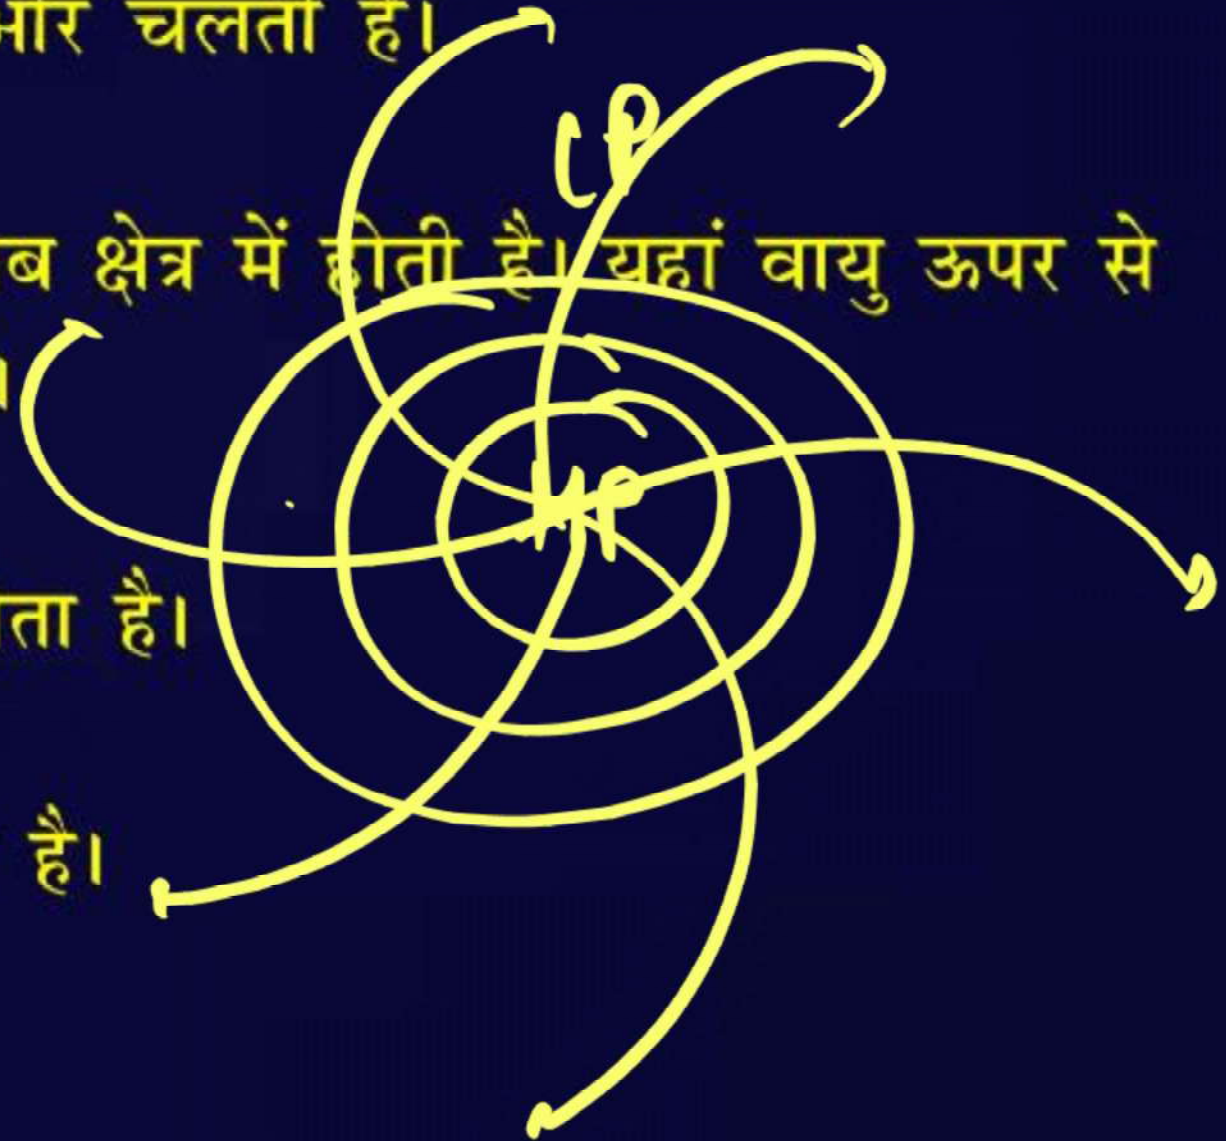 और चलता है।
CP
ब क्षेत्र में होती है। यहां वायु ऊपर से
।
HP
ता है।
है।